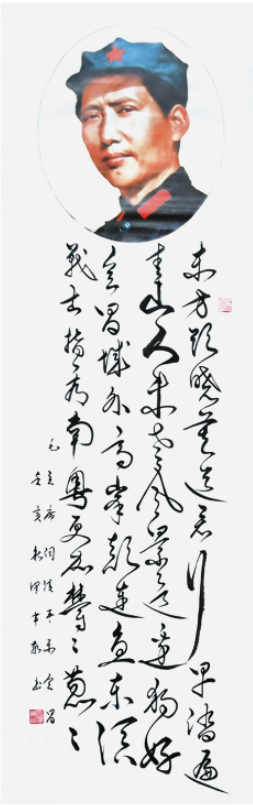 东方欲晓莫道君行早踏遍
青山人未老风景这边独好
会昌城外高峰颠连直东溟
战士指看南粤更加郁々葱々
毛主席词清平乐会昌
书